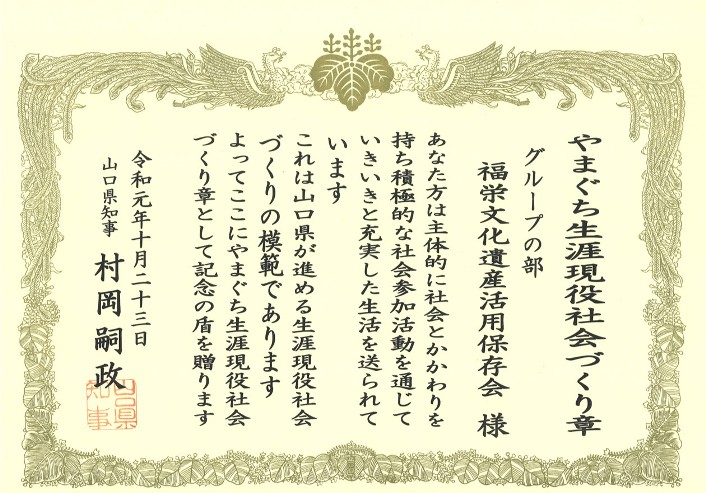 やまぐち生涯現役社会づくり章
グループの部
福栄文化遺産活用保存会 様
あなた方は主体的に社会とかかわりを
持ち積極的な社会参加活動を通じて
いきいきと充実した生活を送られて
います
これは山口県が進める生涯現役社会
づくりの模範であります
よってここにやまぐち生涯現役社会
づくり章として記念の盾を贈ります
令和元年十月二十三日
山口県知事 村岡嗣政
山口県知事